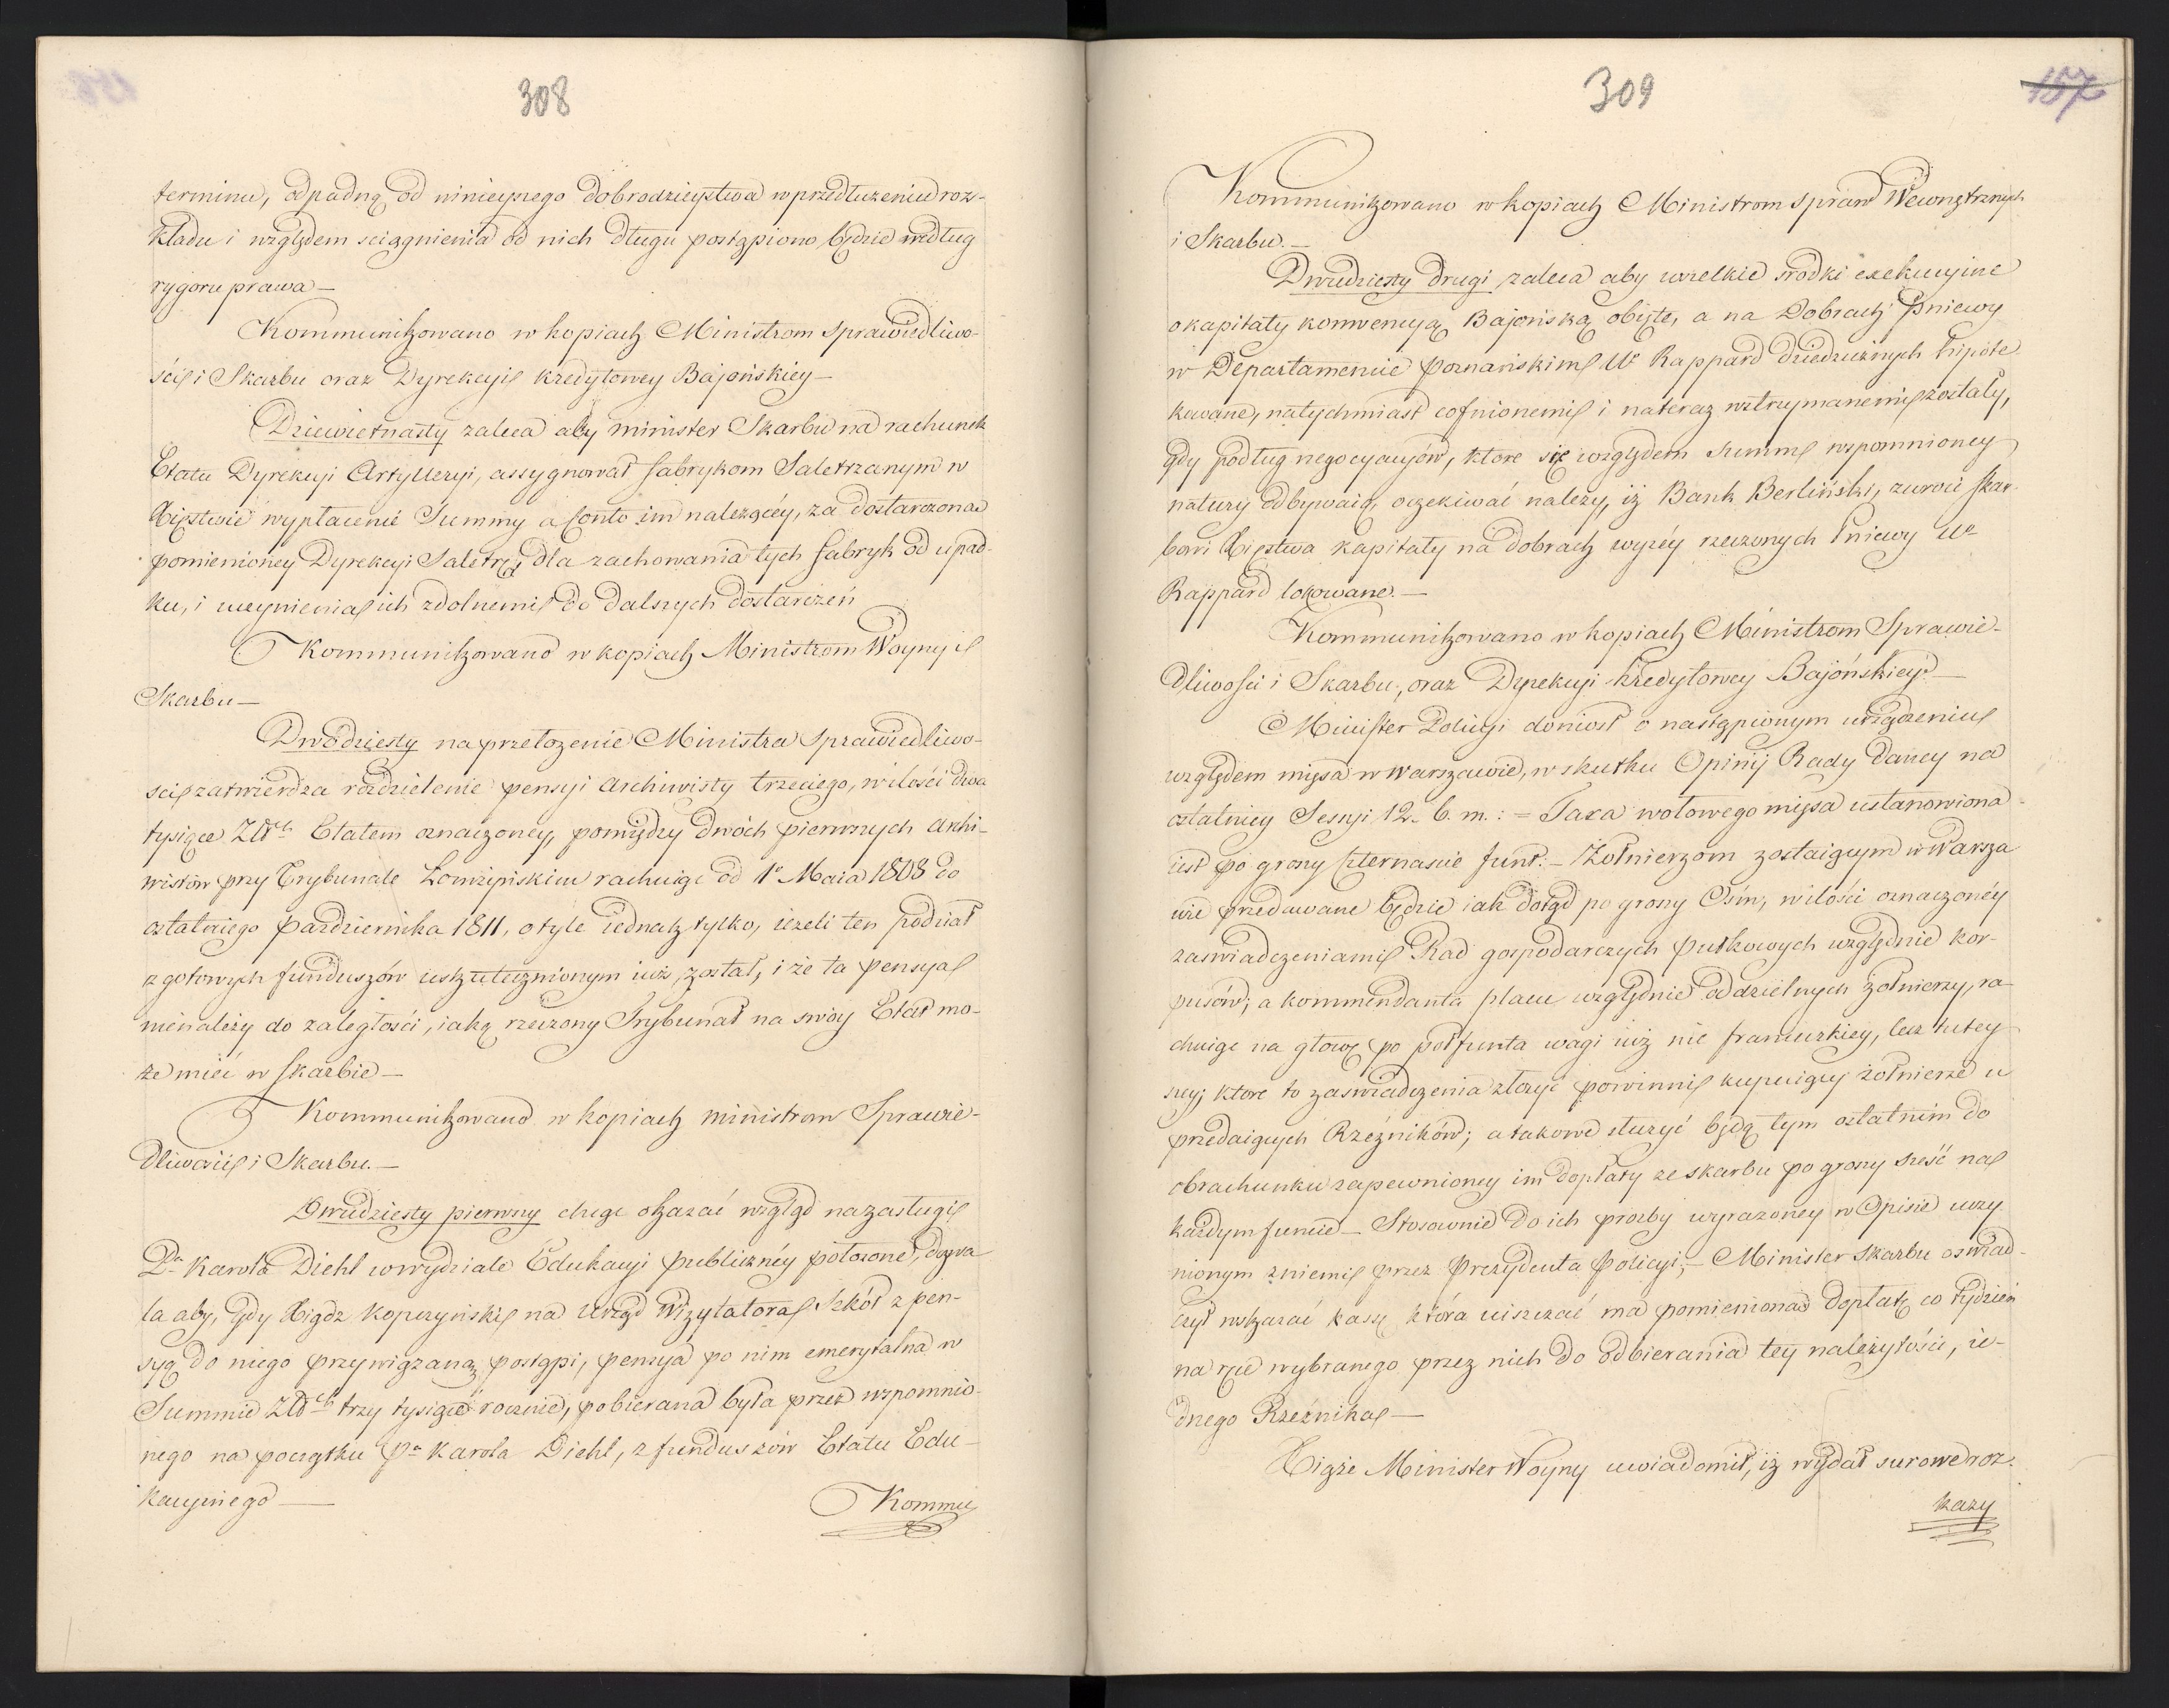 308
terminu, odpadną od ninieyszego dobrodzieystwa w przedłużeniu roz-
kładu i względem sciągnienia od nich długu postąpiono będzie według
rygoru prawa —
Kommunikowano w kopiach Ministrom Sprawiedliwo-
ści i Skarbu oraz Dyrekcyi kredytowey Bajońskiey —
Dziewietnasty zaleca aby minister Skarbu na rachunek
Etatu Dyrekcyi Artylleryi, assygnował fabrykom Saletrzanym w
Xięstwie wypłacenie Summy a Conto im należącéy, za dostarczona
pomienioney Dyrekcyi Saletrę, dla zachowania tych fabryk od upad-
ku, i uczynienia ich zdolnemi do dalszych dostarczeń
Kommunikowano w kopiach Ministrom Woyny i
Skarbu —
Dwódziesty na przełożenie Ministra Sprawiedliwo-
sci zatwierdza rozdzielenie pensyi Archiwisty trzeciego, w ilości dwa
tysiące Złłch Etatem oznaczoney, pomiędzy dwóch pierwszych Archi-
wistów przy Trybunale Łomżyńskim rachuiąc od 1o Maia 1808 do
ostatniego Pazdziernika 1811, o tyle iednak tylko, ieżeli ten podział
z gotowych funduszów uskutecznionym iuż został, i że ta pensya
nienależy do zaległości, iaką rzeczony Trybunał na swóy Etat mo-
że mieć w Skarbie —
Kommunikowano w kopiach ministrom Sprawie-
dliwości i Skarbu. —
Dwudziesty pierwszy chcąc okazać wzgląd na zasługi
Pa Karola Diehl w wydziale Edukacyi publicznéy położone, dozwa
la aby, gdy Xiądz Kopczyński na Urząd Wizytatora Szkół z pen-
syą do niego przywiązaną postąpi, pensya po nim emerytalna w
Summie Złłch trzy tysiące rocznie, pobierana była przez wspomnio-
nego na początku Pa Karola Diehl, z funduszów Etatu Edu-
kacyinego —
Kommu
309
157
Kommunikowano w kopiach Ministrom Spraw Wewnętrznych
i Skarbu. —
Dwudziesty drugi zaleca aby wszelkie srodki exekucyine
o kapitały konwencyą Bajońską obięte, a na Dobrach Pniewy
w Departamencie Poznańskim Ur Rappard dziedzicznych hipote-
kowane, natychmiast cofnionemi i nateraz wstrzymanemi zostały,
gdy podług negocyacyów, ktore się względem summ wspomnioney
natury odbywaią, oczekiwać należy, iż Bank Berliński, zwróci Skar-
bowi Xięstwa kapitały na dobrach wyżéy rzeczonych Pniewy Ur
Rappard lokowane. —
Kommunikowano w kopiach Ministrom Sprawie-
dliwości i Skarbu, oraz Dyrekcyi kredytowey Bajońskiéy. —
Minister Policyi doniosł o nastąpionym urządzeniu
względem mięsa w Warszawie, w skutku Opinij Rady daney na
ostatniey Sessyi 12. b. m.: = Taxa wołowego mięsa ustanowiona
iest po groszy Czternascie funt. — Żołnierzom zostaiącym w Warsza
wie przedawane będzie iak dotąd po groszy Ośm, w ilości oznaczonéy
zaswiadczeniami Rad gospodarczych pułkowych względnie kor-
pusów; a kommendanta placu względnie oddzielnych żołnierzy, ra-
chuiąc na głowę po półfunta wagi iuż nie francuzkiey, lecz tutey-
szey; ktore to zaswiadczenia złożyć powinni kupuiący żołnierze u
przedaiących Rzeźników; a takowe służyć będą tym ostatnim do
obrachunku zapewnioney im dopłaty ze skarbu po groszy sześć na
każdym funcie — Stosownie do ich prozby wyrazoney w Opisie uczy
nionym z niemi przez Prezydenta Policyi; — Minister Skarbu oswiad-
czył wskazać kassę która uiszczać ma pomienioną dopłatę co tydzień
na ręce wybranego przez nich do odbierania tey należytości, ie-
dnego Rzeźnika —
Xiąże Minister Woyny uwiadomił, iż wydał surowe roz-
kazy